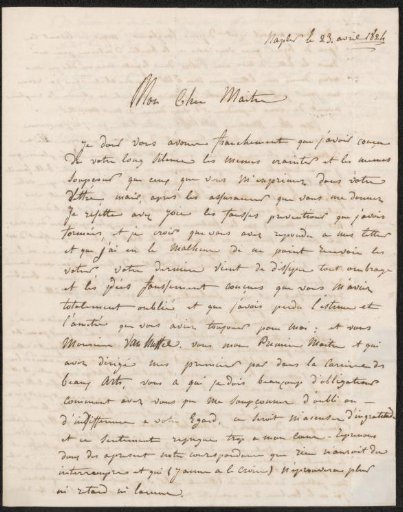 Naples le 23. avril 1824
Mon Cher Maitre
je dois vous avouer franchement que j'avois concu
de votre long silence les memes craintes et les memes
soupcons que ceux que vous m'exprimez dans votre
lettre, mais, apres les assurances que vous me donnez
je rejette avec joie les fausses preventions que j'avois
formées, et je crois que vous avez repondu a mes lettres
et que j'ai eu le malheur de ne point recevoir les
votres. votre derniere vient de dissiper tout ombrage
et les idées faussement concues que vous m'aviez
totalement oublié et que j'avois perdu l'estime et
l'amitié que vous aviez toujours pour moi; et vous
Monsieur vous mon Premier Maitre et qui
avez dirigé mes premiers pas dans la Carriere des
beaux Arts, vous a qui je dois beaucoup d'obligations
comment avez vous pu me soupconner d'oubli ou
d'indifference a votre Egard, ce seroit m'accuser d'ingratitude
et ce sentiment repugne trop a mon Coeur. Reprenons
donc des apresent notre correspondance que rien ne
interrompre et qui (j'aime à le croire) n'éprouvera plus
ni retard ni lacune.